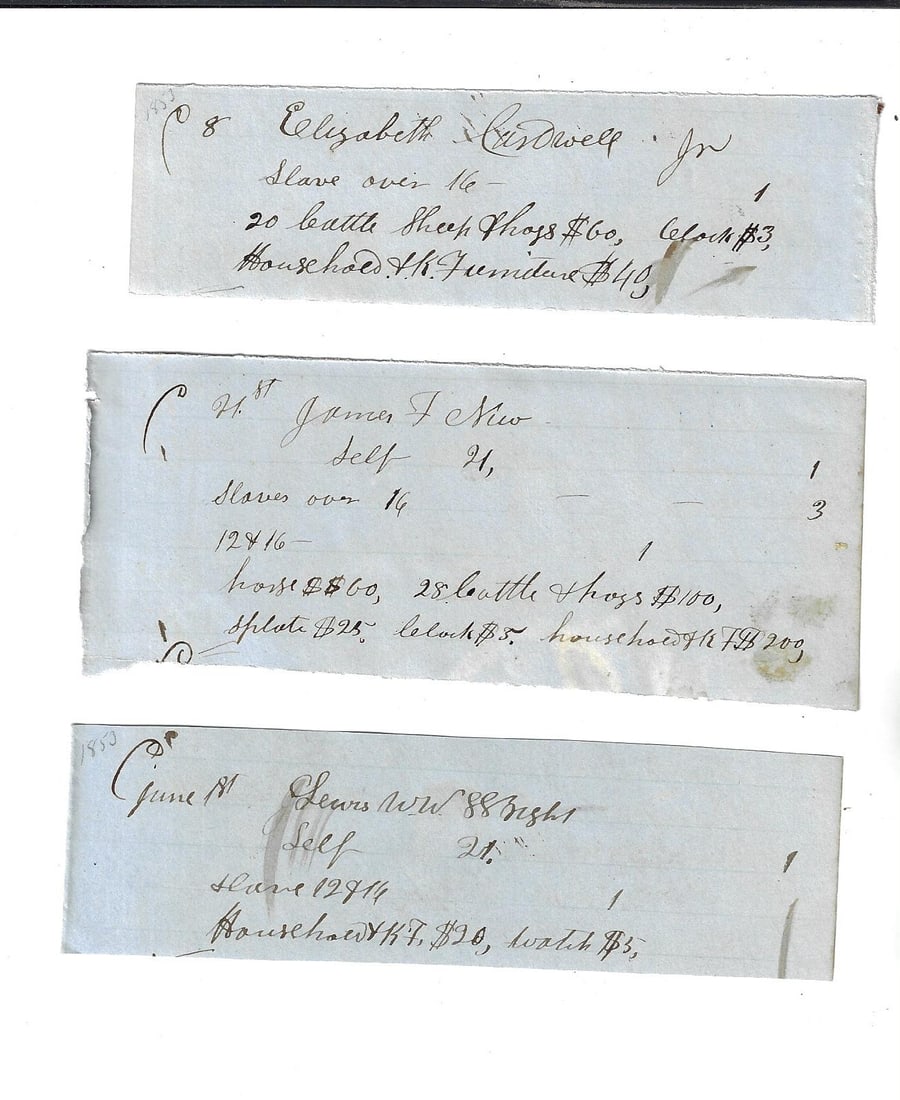 1853
8 Elizabeth Cardwell Jr
Slave over 16 — 1
20 Cattle Sheep & hogs $60, Clock $3,
Household & K. Furniture $40,
21.st James F New
Self 21, 1
Slaves over 16 — — 3
12 & 16 — 1
horse $60, 28 Cattle & hogs $100,
Splate $25. Clock $5. household & K F $200,
1853
June 1st Lewis W.W.
Self 21. 1
Slave 12 & 16 1
Household & K F. $20, Watch $5,